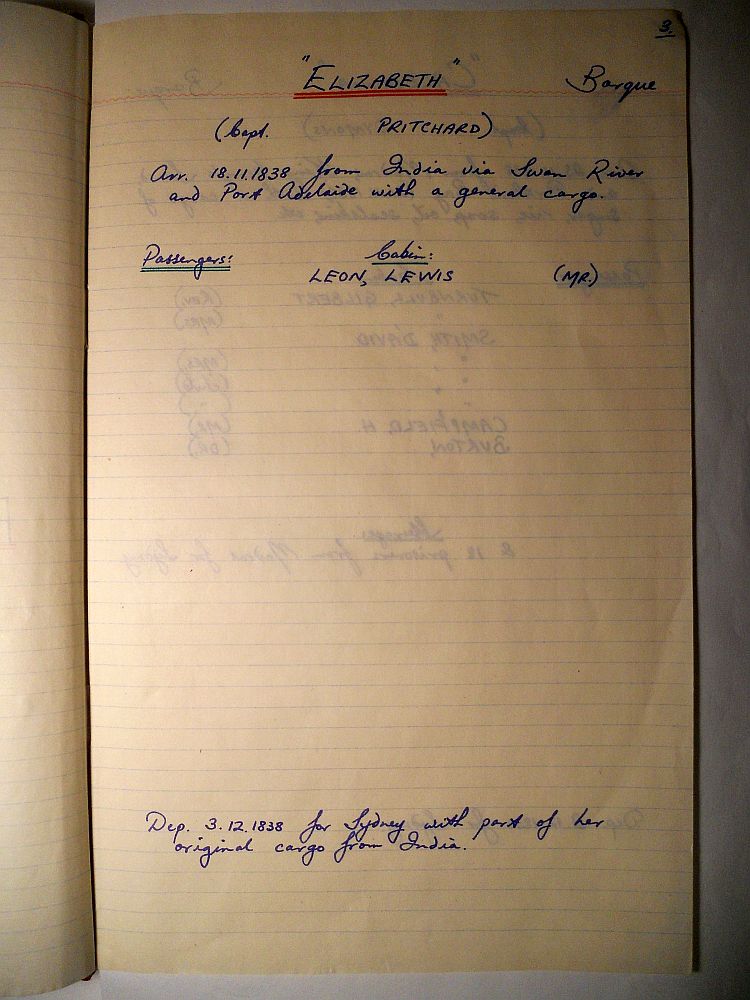 3.
"ELIZABETH" Barque
(Capt. PRITCHARD)
Arr. 18.11.1838 from India via Swan River
and Port Adelaide with a general cargo.
Passengers: Cabin:
LEON, LEWIS (MR.)
Dep. 3.12.1838 for Sydney with part of her
original cargo from India.